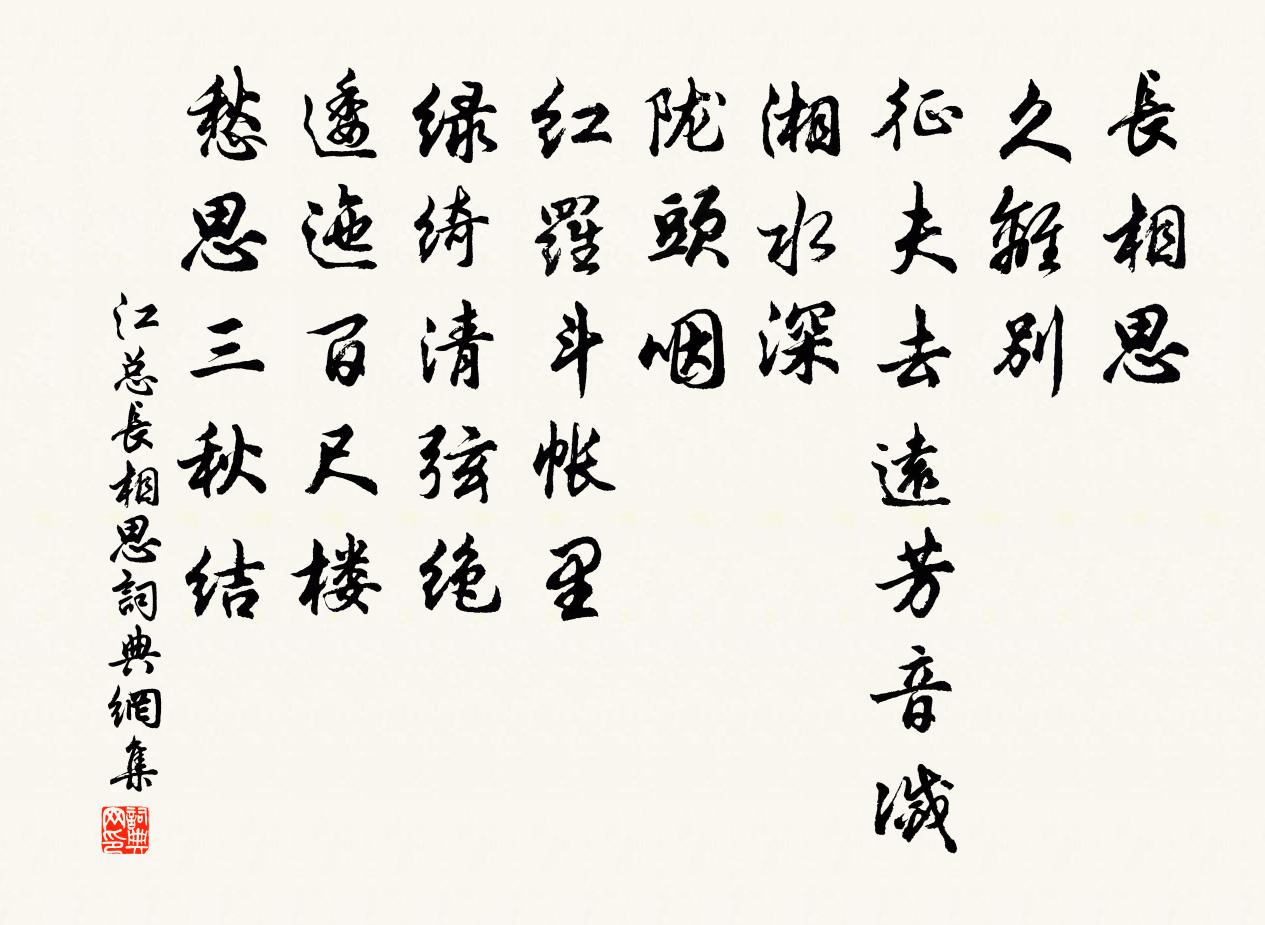 長相思
久離別
征夫去遠芳音滅
湘水深
陇頭咽
红羅斗帐里
绿绮清弦绝
逶迤百尺楼
愁思三秋结
江总長相思詞典網集
詞典网印